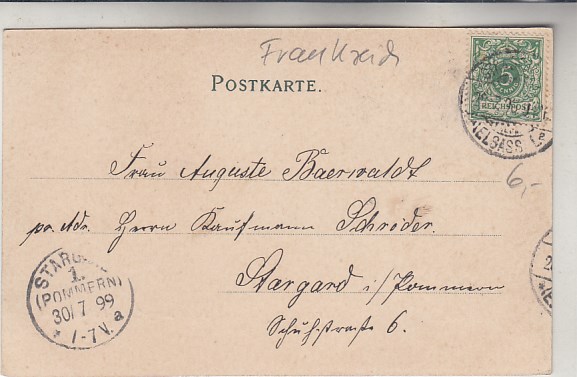 Frankreich
POSTKARTE.
5
REICHSPOST
(ELSASS)
6,-
Frau Auguste Baerwaldt
pr. Adr. Herrn Kaufmann Schröder.
Stargard i/Pommern
Schuhstrasse 6.
STARGARD
1.
(POMMERN)
30/7 99
* 1-7V. a